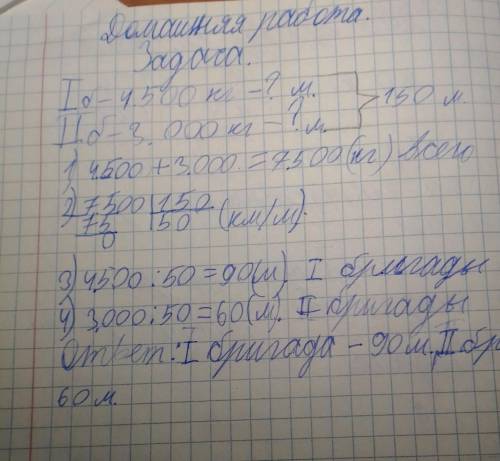 Домашняя работа.
Задача.
I б - 4.500 кг - ? м.
II б - 3.000 кг - ? м. } 150 м.
1) 4500 + 3.000 = 7500 (кг) всего
2) 7500 | 150
75 | 50 (км/м).
0
3) 4500 : 50 = 90 (м) I бригады
4) 3.000 : 50 = 60 (м). II бригады
Ответ: I бригада - 90 м. II бр
60 м.